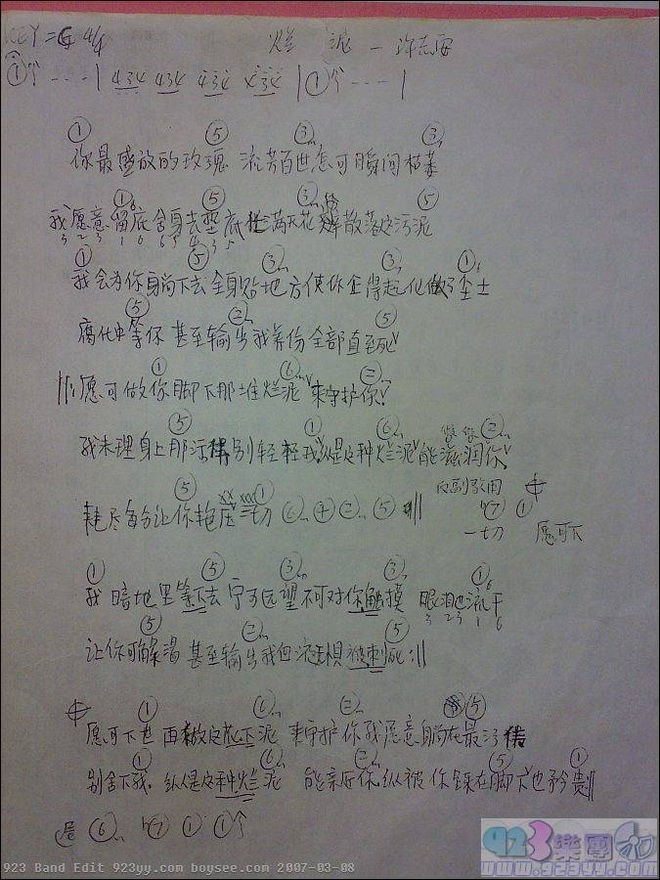 KEY=G 4/4 烂 泥 — 许志安
①↑ - - - | 434 434 434 x34 | ①↑ - - - - |
① ⑤ ③m ③m
你最盛放的玫瑰 流芳百世怎可瞬间枯萎
① 6 ⑤ ③m ⑤
我愿意留底舍身去垫底 满天花 散落这污泥
3 2 3 1 6 6 5 4 3 5
① ⑤ ③m ③m ① 6
我会为你身躺下去全身贴地 方使你企得起化做了尘土
⑤ ②m ⑤
腐化中等你 甚至输出我养份全部直至死
① ⑥m ②m
愿可做你脚下那堆烂泥 来守护你
⑤ ① ⑥m ②m
我未理身上那污 别轻轻我 纵是这种烂泥 能滋润你
⑤ ①
耗尽每分让你艳压一切 ⑥m ④ ②m ⑤
反副歌用
b⑦ ①
一切 愿可下
① ⑤ ③m ③m ① 6
我 暗地里等下去 宁可远望 不可对你触摸 眼泪也流干
3 2 3 1 6
⑤ ②m ⑤
让你可解渴 甚至输出我血液无惧被刺死 :||
① ⑥m ②m ⑤
愿可下世 再做这花下泥 来守护你 我愿意身躺在最污
① ⑥m ②m ⑤ ①
别舍下我 纵是这种烂泥 能亲近你 纵被你踩在脚下也矜贵
尾 ⑥m b⑦ ① ①↑
923樂團
www.923yy.com
923 Band Edit 923yy.com boysee.com 2007-03-08